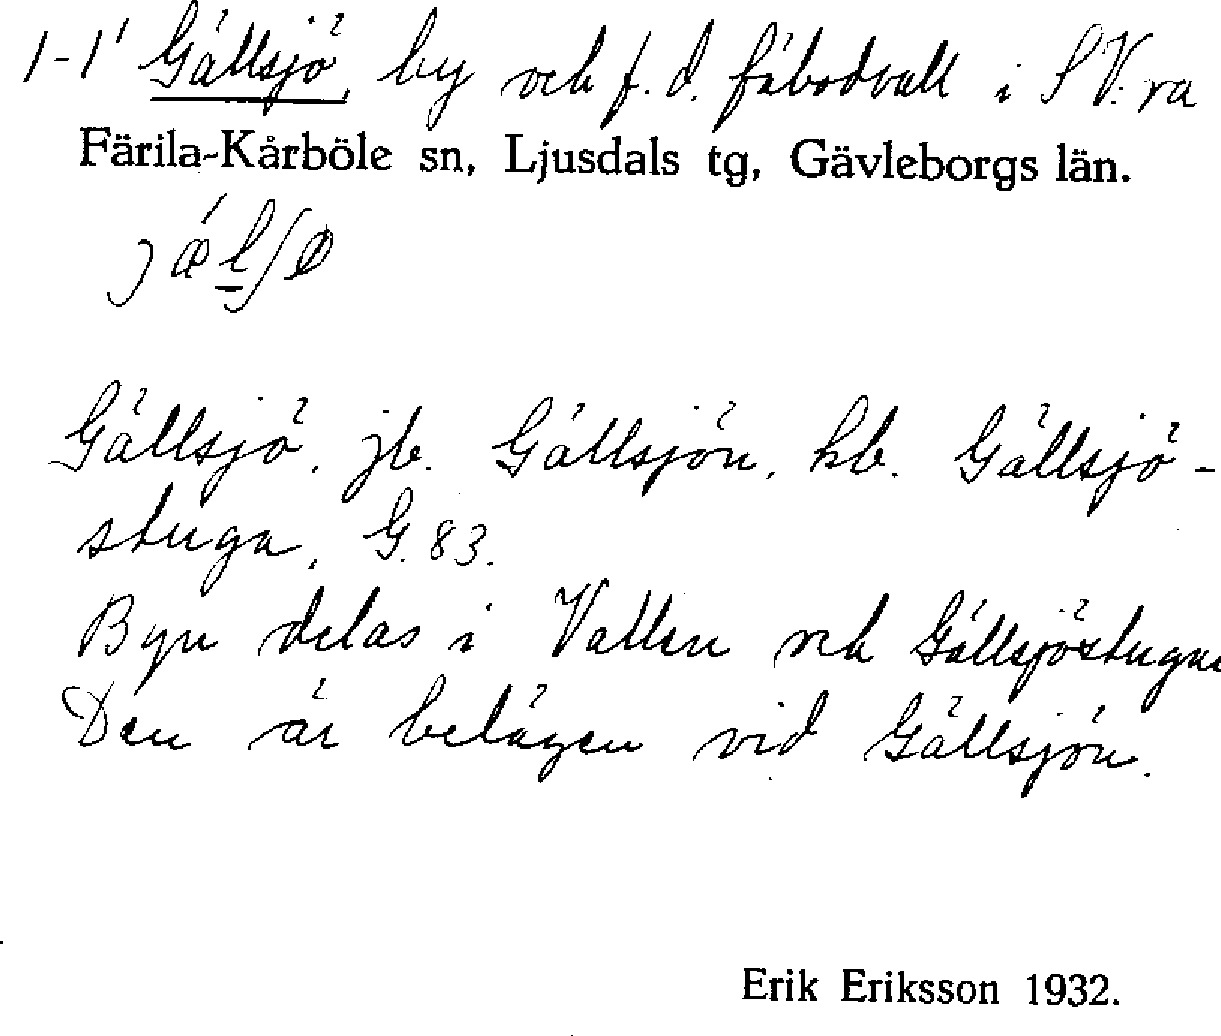 1-1' Gällsjö, by och f. d. fäbodvall i SV:ra
Färila-Kårböle sn, Ljusdals tg, Gävleborgs län.
Gällsjö, jb. Gällsjön, hb. Gällsjö-
stuga, G. 83.
Byn delas i Vallen och Gällsjöstugan
Den är belägen vid Gällsjön.
Erik Eriksson 1932.